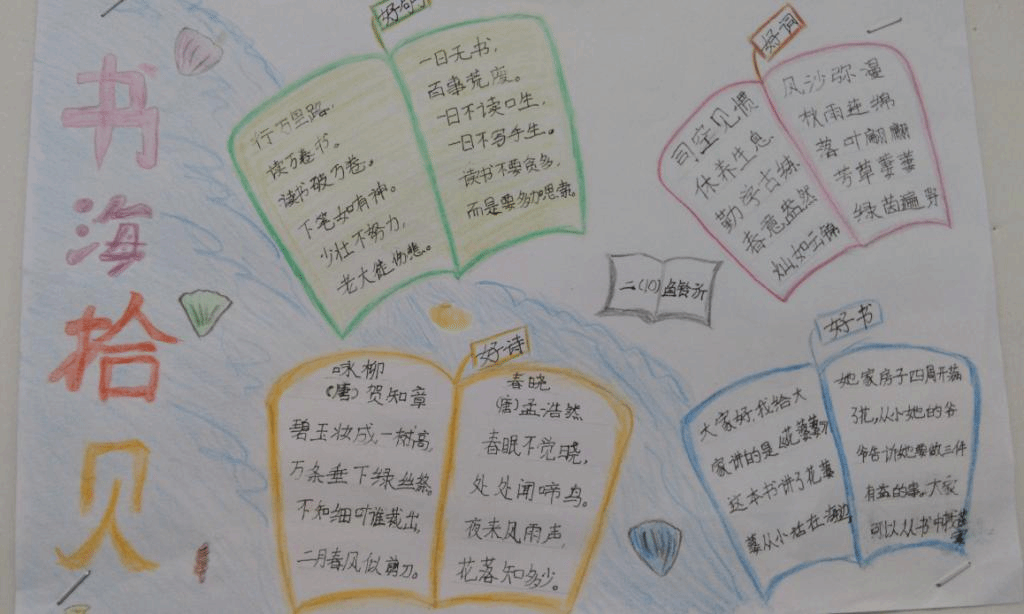 书海拾贝
好句
行万里路,
读万卷书。
读书破万卷。
下笔如有神。
少壮不努力,
老大徒伤悲。
一日无书,
百事荒废。
一日不读口生,
一日不写手生。
读书不要贪多,
而是要多加思索。
好词
司空见惯
休养生息
勤学古练
春意盎然
灿如云锦
风沙弥漫
秋雨连绵
落叶翩翩
芳草萋萋
绿茵遍野
二(10)
好诗
咏柳
(唐)贺知章
碧玉妆成一树高,
万条垂下绿丝绦。
不知细叶谁裁出,
二月春风似剪刀。
春晓
(唐)孟浩然
春眠不觉晓,
处处闻啼鸟。
夜来风雨声,
花落知多少。
好书
大家好,我给大
家讲的是《花婆婆》
这本书讲了花婆
婆从小站在海边
她家房子四周开满
花,从小她的爷
爷告诉她要做三件
有益的事。大家
可以从书中